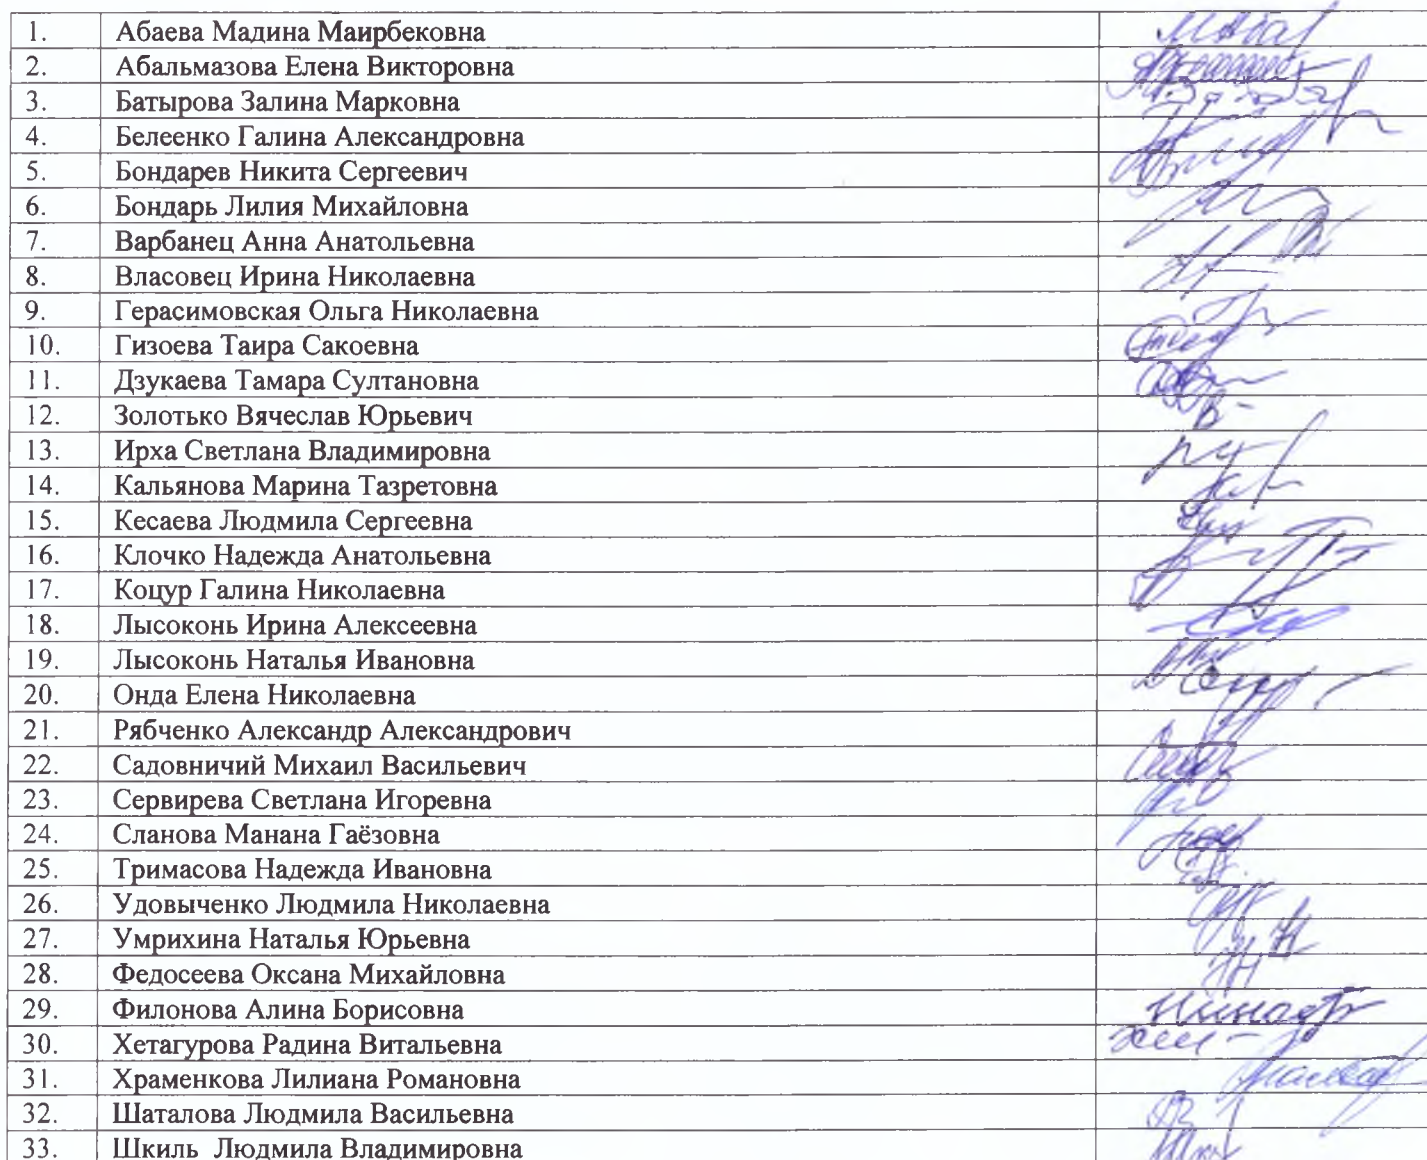 1. Абаева Мадина Маирбековна
2. Абальмазова Елена Викторовна
3. Батырова Залина Марковна
4. Белеенко Галина Александровна
5. Бондарев Никита Сергеевич
6. Бондарь Лилия Михайловна
7. Варбанец Анна Анатольевна
8. Власовец Ирина Николаевна
9. Герасимовская Ольга Николаевна
10. Гизоева Таира Сакоевна
11. Дзукаева Тамара Султановна
12. Золотько Вячеслав Юрьевич
13. Ирха Светлана Владимировна
14. Кальянова Марина Тазретовна
15. Кесаева Людмила Сергеевна
16. Клочко Надежда Анатольевна
17. Коцур Галина Николаевна
18. Лысоконь Ирина Алексеевна
19. Лысоконь Наталья Ивановна
20. Онда Елена Николаевна
21. Рябченко Александр Александрович
22. Садовничий Михаил Васильевич
23. Сервирева Светлана Игоревна
24. Сланова Манана Гаёзовна
25. Тримасова Надежда Ивановна
26. Удовыченко Людмила Николаевна
27. Умрихина Наталья Юрьевна
28. Федосеева Оксана Михайловна
29. Филонова Алина Борисовна
30. Хетагурова Радина Витальевна
31. Храменкова Лилиана Романовна
32. Шаталова Людмила Васильевна
33. Шкиль Людмила Владимировна